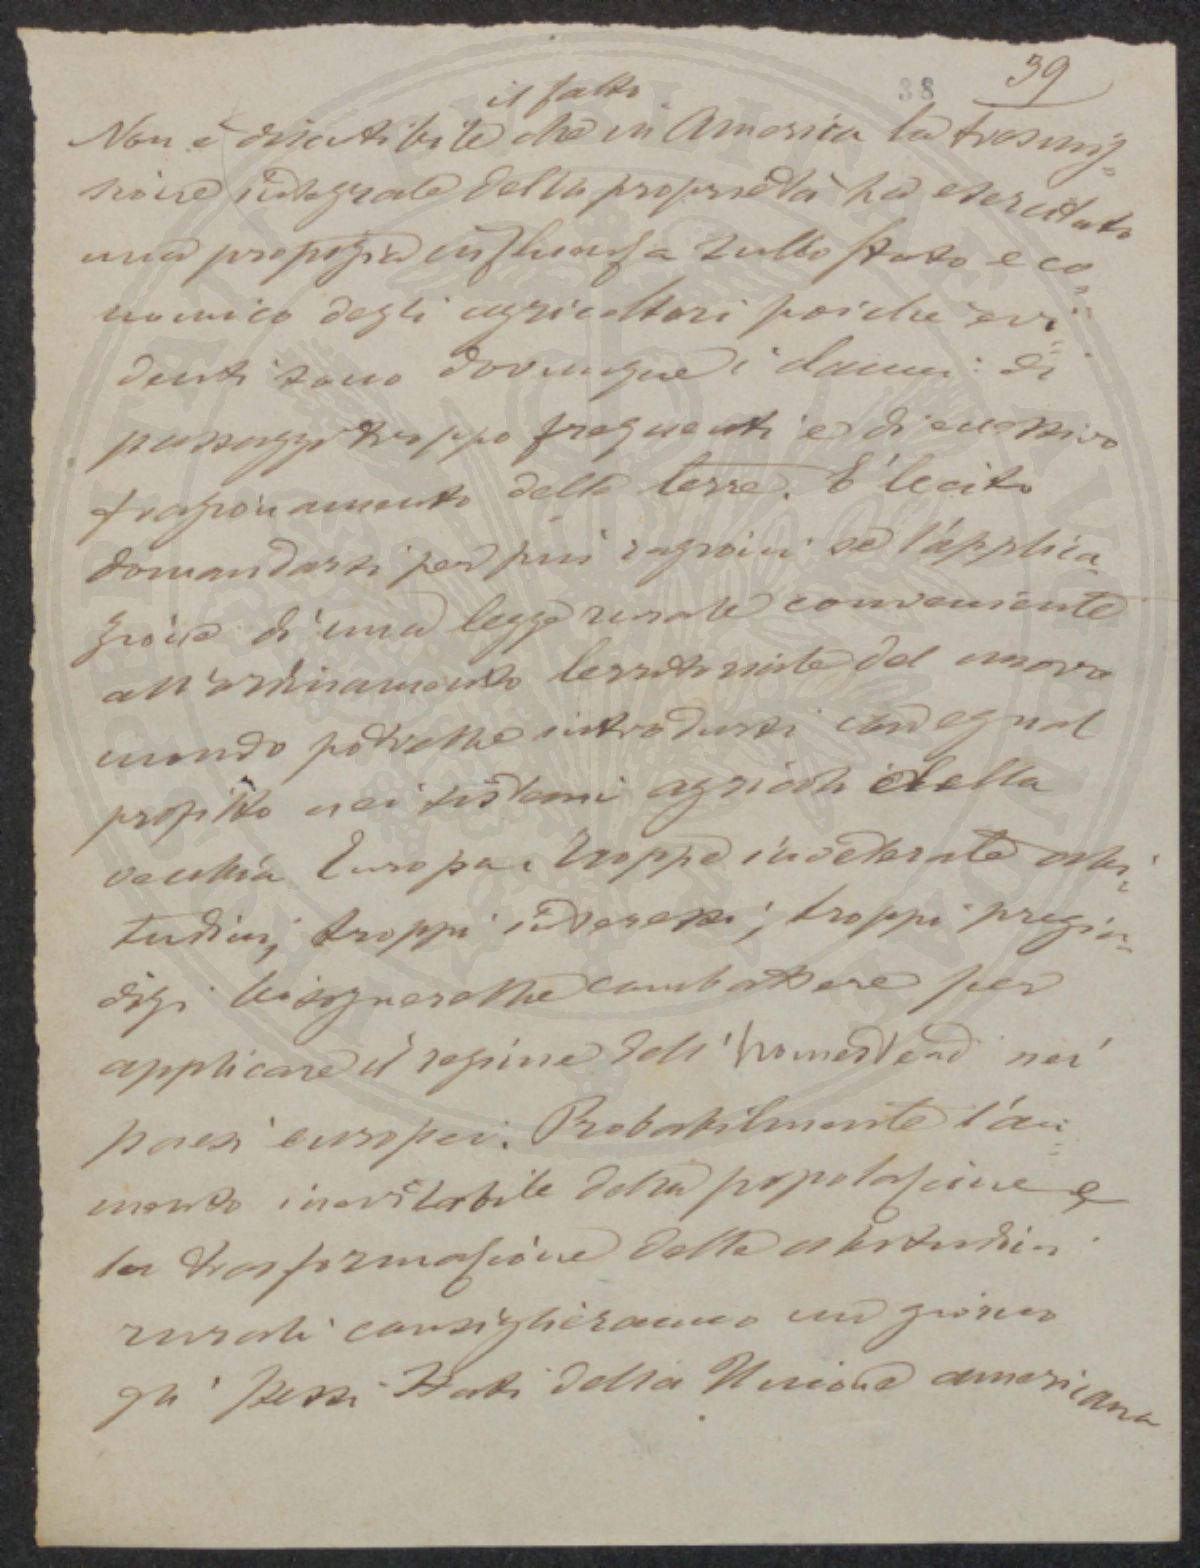 39
38
il fatto
Non è discutibile che in America la trasmis=
sione integrale della proprietà ha esercitato
una propizia influenza sullo stato eco=
nomico degli agricoltori poichè evi=
denti sono dovunque i danni di
passaggi troppo frequenti e di eccessivo
frazionamento delle terre. È lecito
domandarsi per più ragioni se l'applica
zione di una legge rurale conveniente
all'ordinamento territoriale del nuovo
mondo potrebbe introdursi con egual
profitto nei sistemi agricoli della
vecchia Europa. Troppe inveterate abi=
tudini, troppi interessi, troppi pregiu=
dizi bisognerebbe combattere per
applicare il regime dell'homestead nei
paesi europei. Probabilmente l'au=
mento inevitabile della popolazione e
la trasformazione delle abitudini
rurali consiglieranno un giorno
gli stessi Stati della Unione americana